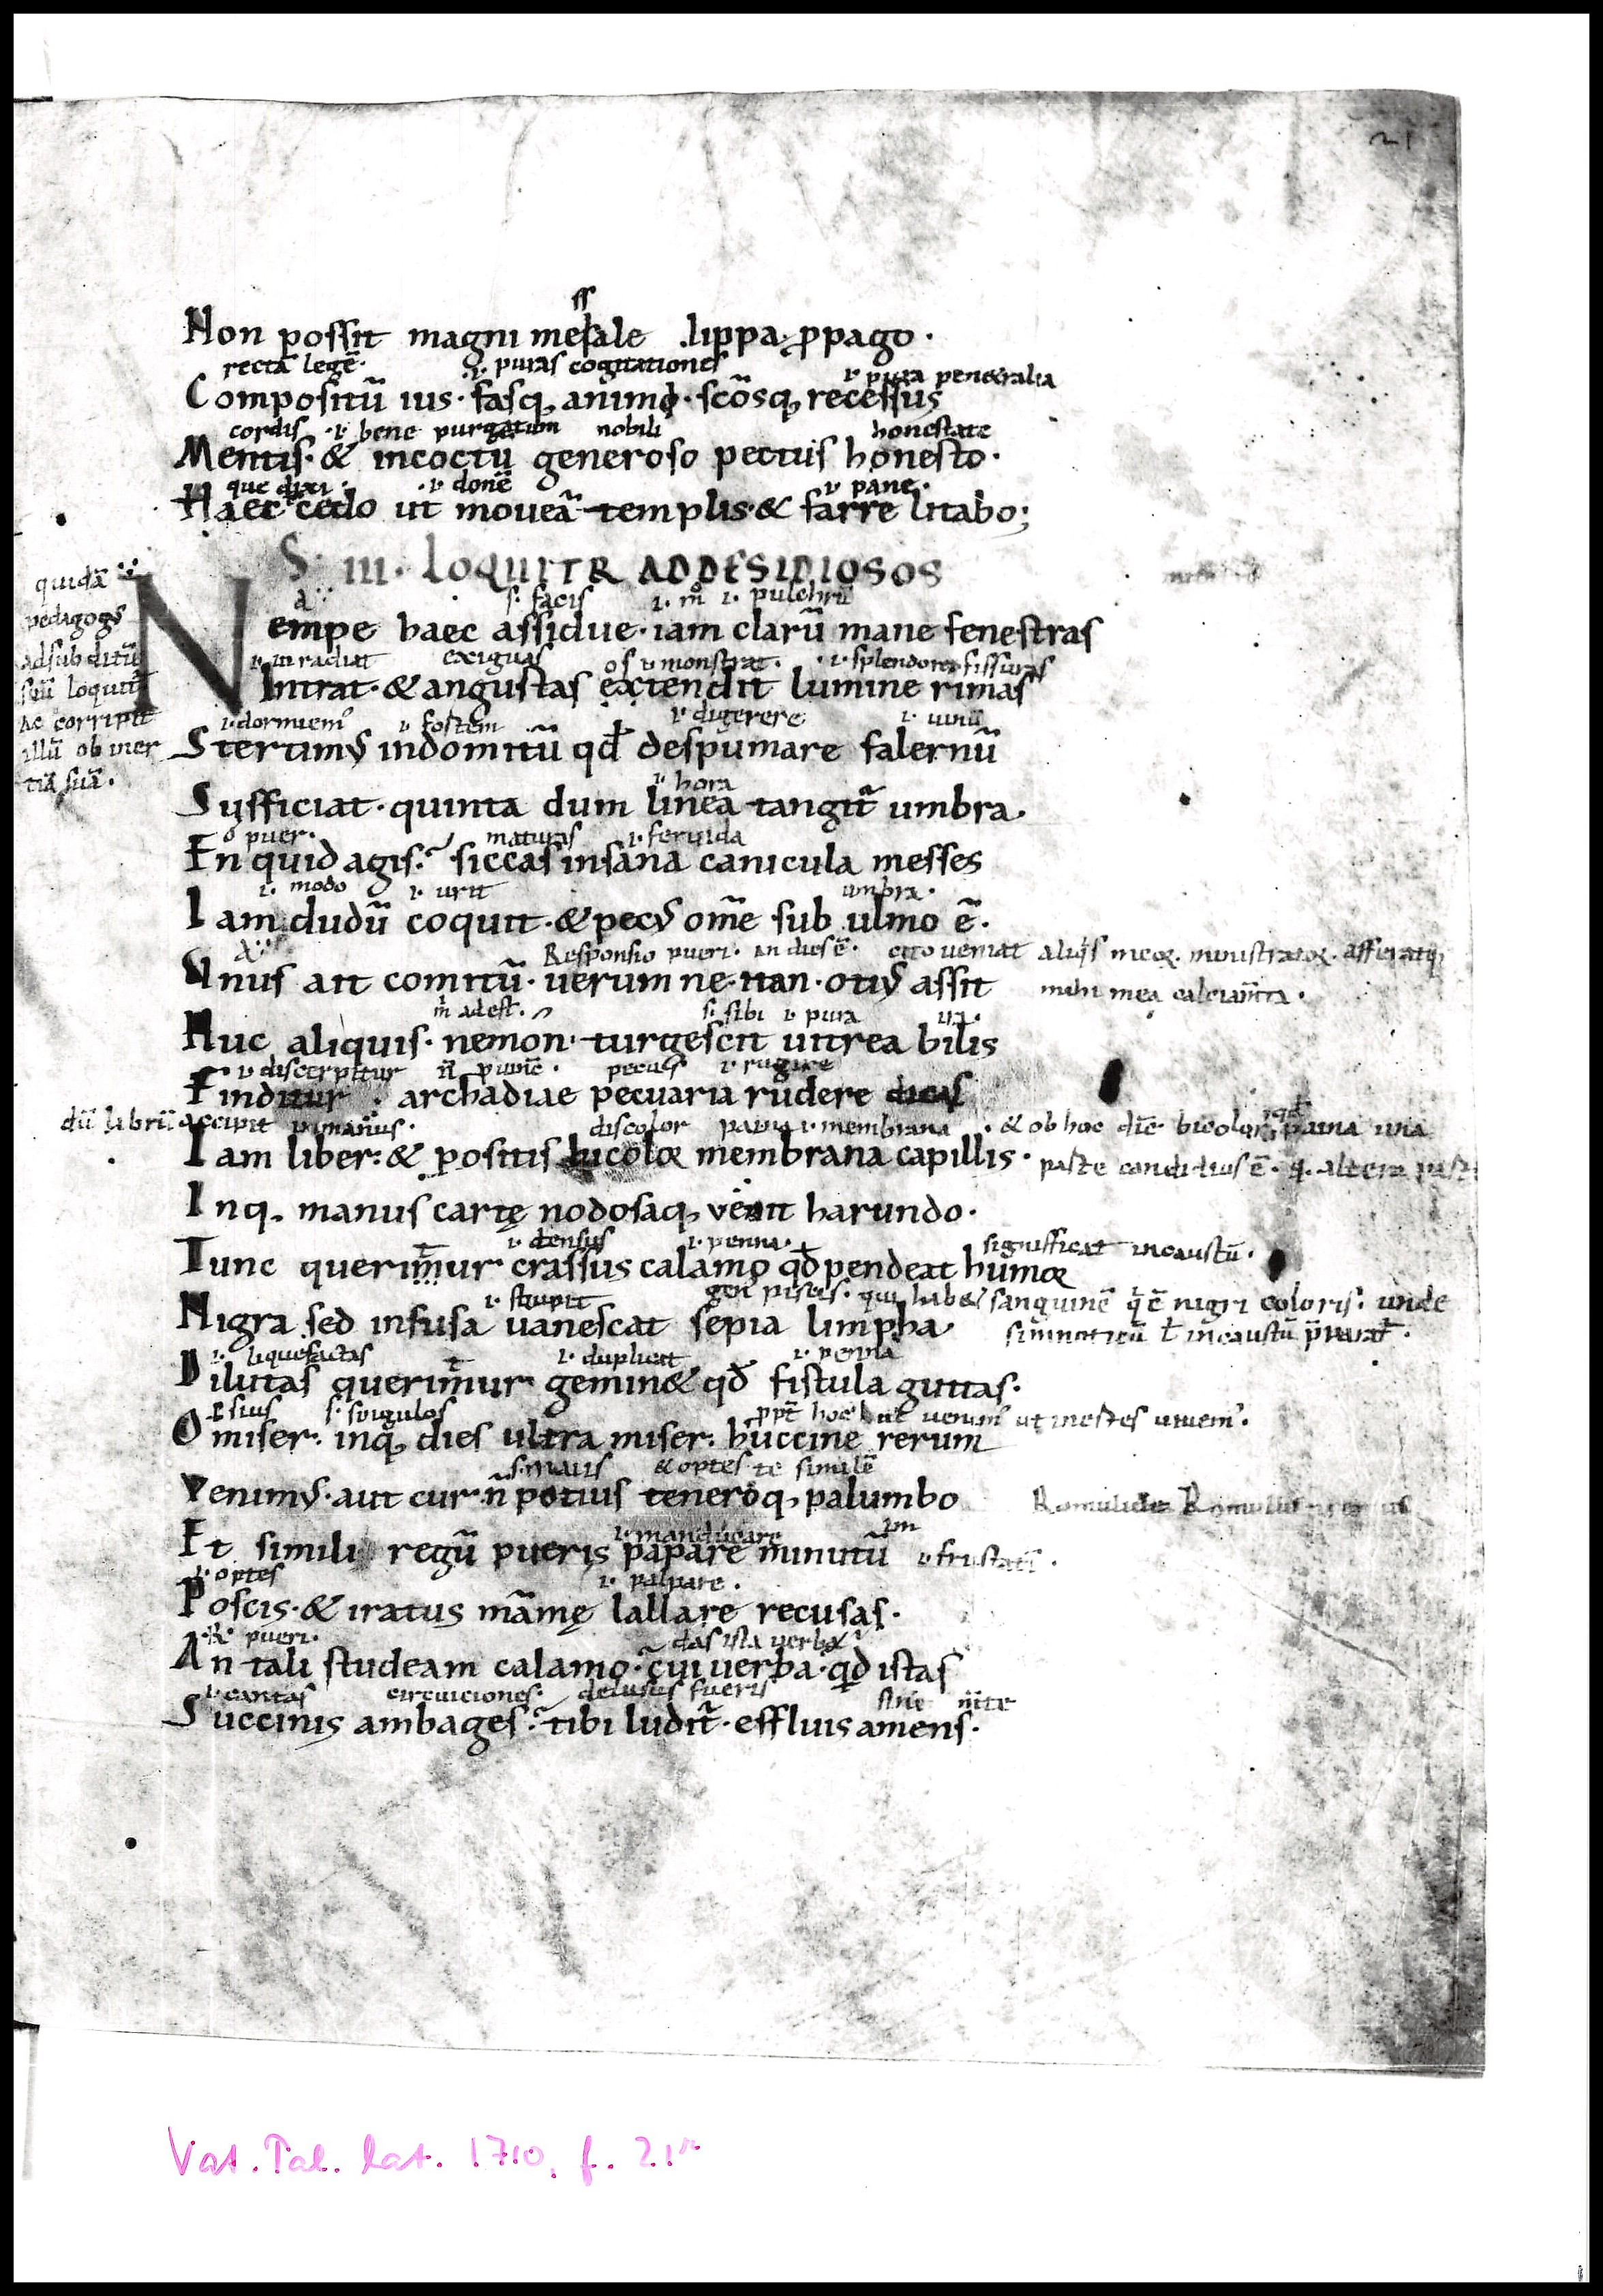 21
ss
Non possit magni mesale lippa ꝓpago·
rectā legē· ·i· puras cogitationes ·i· pura penetralia
Compositū ius· fasq; animo· scōsq; recessus
cordis ·i· bene purgatum nobili honestate
Mentis· & incoctū generoso pectus honesto·
que dixi· ·i· donē ·i· pane·
Haec cedo ut moueā templis· & farre litabo;
S· III· LOQUITR ADDESIDIOSOS
quidā
pedagogꝰ
adsubditū
suū loquit̃
ac corripit
illū ob iner
tiā suā·
s· facis ·i· m̊ ·i· pulchrū
Nempe haec assidue· iam clarū mane fenestras
·i· inradiat exiguas os ·i· monstrat· ·i· splendore fissuras
Intrat· & angustas extendit lumine rimas
·i· dormiemꝰ ·i· fortem ·i· digerere ·i· uinū
Stertimꝰ indomitū qđ despumare falernū
·i· hora
Sufficiat· quinta dum linea tangit̃ umbra·
o puer· maturas ·i· feruida
En quid agis? siccas insana canicula messes
·i· modo ·i· urit umbra·
Iam dudū coquit· & pecꝰ om̄e sub ulmo ē·
Responsio pueri· an dies ē· cito ueniat aliq̇s meoꝝ ministratoꝝ· afferatq;
Unus ait comitū· uerum ne· nan· otiꝰ assit mihi mea calciam̄ta·
m̄ adest· s· sibi ·i· pura
Huc aliquis· nemon· turgescit uitrea bilis
·i· discerpitur pecus ·i· rugire
Finditur· archadiae pecuaria rudere dicas
dū librū accipit discolor ·i· membrana · & ob hoc dic̄ bicolor una
Iam liber· & positis bicoloꝛ membrana capillis· parte candidius ē· altera
Inq; manus cartę nodosaq; venit harundo·
·i· densus ·i· penna· significat incaustū·
Tunc querimur crassus calamo qđ pendeat humoꝛ
·i· genꝰ piscis· qui hab& sanguinē q̇ ē nigri coloris· unde
Nigra sed infusa uanescat sepia limpha incaustū
·i· liquefactas ·i· duplicat ·i· penna
Dilutas querimur gemin& qđ fistula guttas·
s· singulos hoc ut inertes uiuemꝰ·
O miser· inq; dies ultra miser· huccine rerum
s· mauis & optes te similē
Venimꝰ· aut cur n̄ potius teneroq; palumbo Romulus
·i· manducare
Et simili regū pueris papare minutū
·i· optes ·i· palpare·
Poscis· & iratus māmę lallare recusas·
R̊ pueri· das ista uerba
An tali studeam calamo· cui uerba· qđ istas
·i· cantas circuiciones· delusus fueris
Succinis ambages? tibi ludit̃· effluis amens·
Vat. Pal. lat. 1710, f. 21r